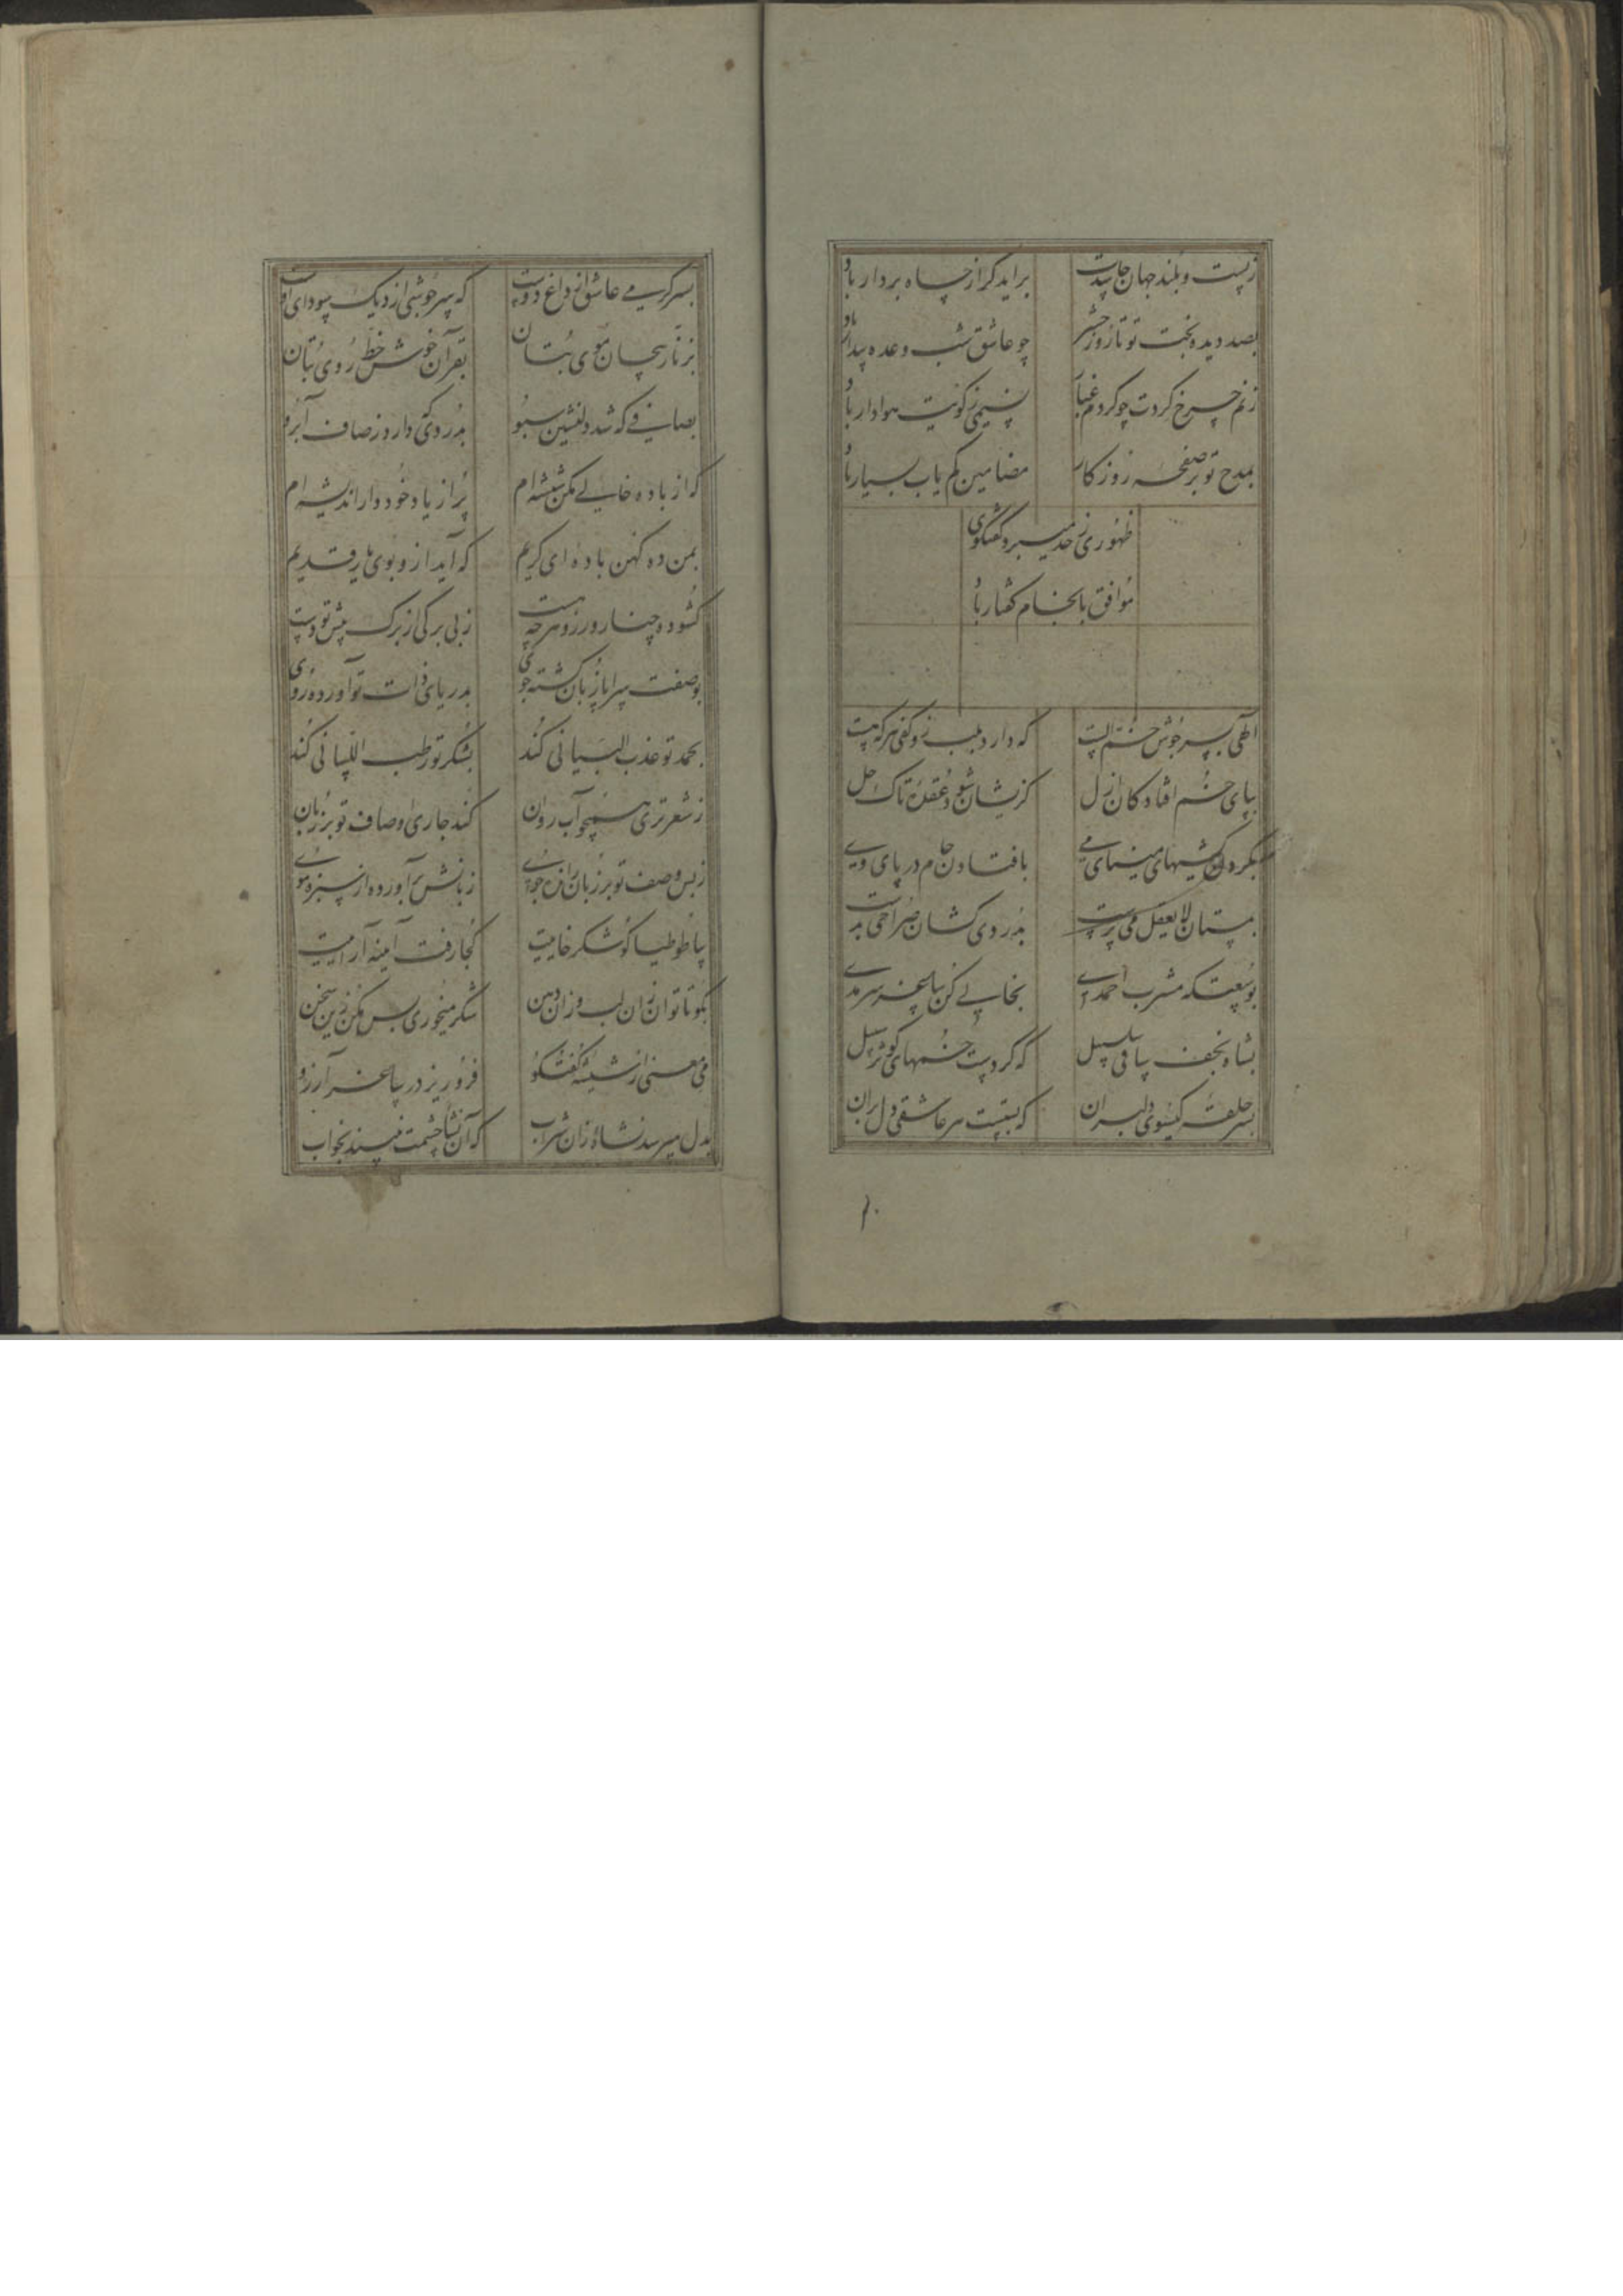 ز پست و بلند جهان حاسدت
براید گر از چاه بردار باد
بصد دیده بخت تو تا روز حشر
چو عاشق شب وعده بیدار باد
نسیمی ز کویت هوادار باد
بمدح تو بر صفحه روزگار
مضامین کم یاب بسیار باد
ظهوری ز حد میبرد گفتگوی
موافق بانجام گفتار باد
الهی بسر جوش خم الست
که دارد بلب زو کفی هر که هست
بپای خم افتادگان ازل
کزیشان شود عقده تاک حل
بگردن کشیهای مینای می
بافتادن جام در پای وی
بمستان لا یعقل می پرست
بدردی کشان صراحی بدست
بوسعتگه مشرب احمدی
بخالی کن ساغر سرمدی
بشاه نجف ساقی سلسبیل
که کردست خمهای کوثر سبیل
بسر حلقه گیسوی دلبران
که بستست سر عاشقی دل بران
بسر گرمی عاشق از داغ دوست
که سرجوشی از دیک سودای اوست
بزنار پیچان موی بتان
بقرآن خوش خط روی بتان
بصافی که شد دلنشین سبو
بدردی که دارد ز صاف آبرو
که از باده خالی مکن شیشه ام
پر از یاد خود دار اندیشه ام
بمن ده کهن باده ای کریم
که آید ازو بوی یار قدیم
گشوده چنار و رز و هرچه هست
ز بی برگی از برگ پیش تو دست
بوصفت سراپا زبان گشته جوی
بدریای ذات تو آورده روی
بحمد تو عذب البیانی کند
بشکر تو رطب اللسانی کند
ز شعر تری همچو آب روان
کند جاری اوصاف تو بر زبان
ز بس وصف تو بر زبان راند جوی
زبانش برآورده از سبزه موی
بیا طوطیا کو شکر خاییت
کجا رفت آیینه آراییت
بگو تا توان زان لب و زان دهن
شکر میخوری بس مکن زین سخن
می معنی از شیشه گفتگو
فرو ریز در ساغر آرزو
بدل میرسد نشاه زان شراب